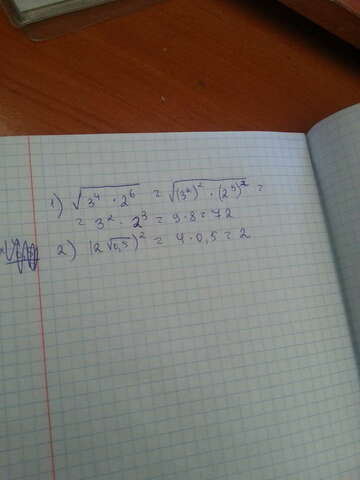 1) √(3⁴ · 2⁶) = √((3²)² · (2³)²) =
= 3² · 2³ = 9 · 8 = 72
2) (2√0,5)² = 4 · 0,5 = 2